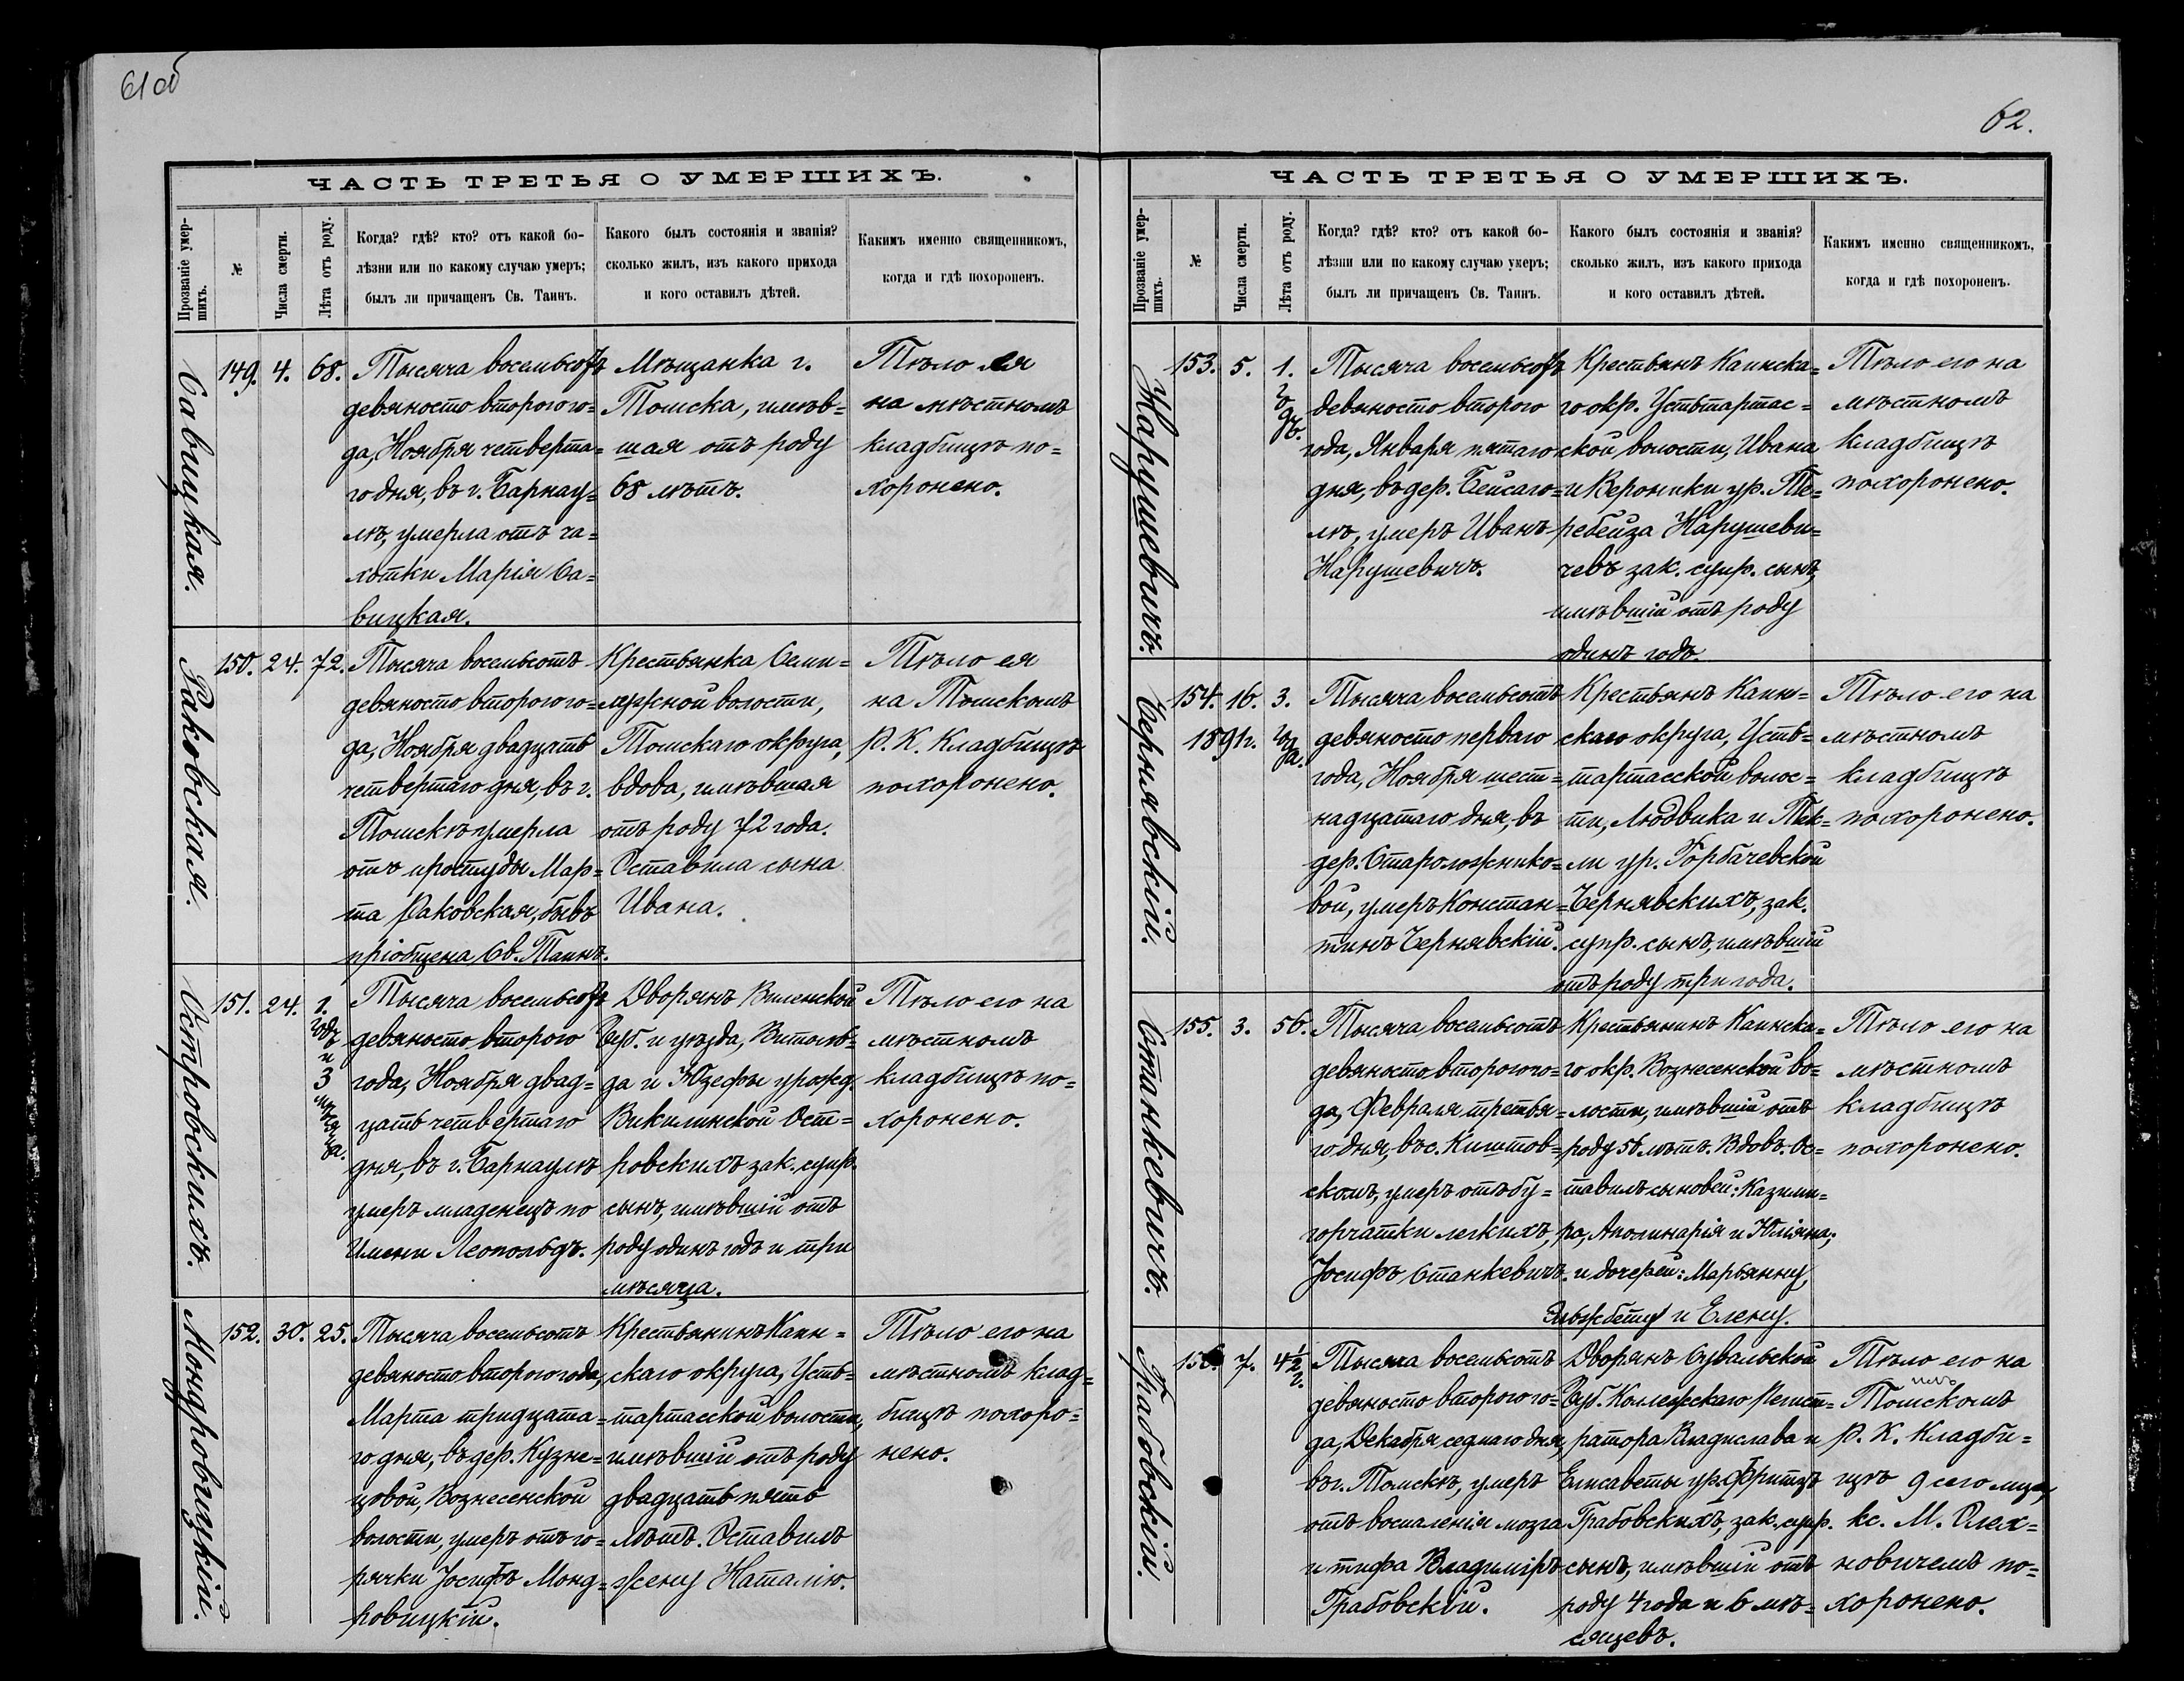 61 об
ЧАСТЬ ТРЕТЬЯ О УМЕРШИХЪ.
Прозваніе умер-
шихъ.
№
Числа смерти.
Лѣта отъ роду.
Когда? гдѣ? кто? отъ какой бо-
лѣзни или по какому случаю умеръ;
былъ ли причащенъ Св. Таинъ.
Какого былъ состоянія и званія?
сколько жилъ, изъ какого прихода
и кого оставилъ дѣтей.
Какимъ именно священникомъ,
когда и гдѣ похороненъ.
Савицкая.
149. 4. 68.
Тысяча восемьсотъ
девяносто второго го=
да, Ноября четверта=
го дня, въ г. Барнау=
лѣ, умерла отъ ча=
хотки Марія Са=
вицкая.
Мѣщанка г.
Томска, имѣв=
шая отъ роду
68 лѣтъ.
Тѣло ея
на мѣстномъ
кладбищѣ по=
хоронено.
Раковская.
150. 24. 72.
Тысяча восемьсотъ
девяносто второго го=
да, Ноября двадцать
четвертаго дня, въ г.
Томскѣ умерла
отъ простуды Мар=
та Раковская, бывъ
пріобщена Св. Таинъ.
Крестьянка Семи=
лужной волости,
Томскаго округа,
вдова, имѣвшая
отъ роду 72 года.
Оставила сына
Ивана.
Тѣло ея
на Томскомъ
Р. К. Кладбищѣ
похоронено.
Островскихъ.
151. 24. 1.
годъ
и
3
мѣ
ся
ца.
Тысяча восемьсотъ
девяносто второго
года, Ноября двад=
цать четвертаго
дня, въ г. Барнаулѣ
умеръ младенецъ по
имени Леопольдъ.
Дворянъ Виленской
Губ. и уѣзда, Витоль=
да и Юзефы урожд.
Викилинской Ост=
ровскихъ зак. супр.
сынъ, имѣвшій отъ
роду одинъ годъ и три
мѣсяца.
Тѣло его на
мѣстномъ
кладбищѣ по=
хоронено.
Мондровицкій.
152. 30. 25.
Тысяча восемьсотъ
девяносто второго года,
Марта тридцата=
го дня, въ дер. Кузне=
цовой, Вознесенской
волости, умеръ отъ го=
рячки Іосифъ Монд=
ровицкій.
Крестьянинъ Каин=
скаго округа, Усть=
тартасской волости,
имѣвшій отъ роду
двадцать пять
лѣтъ. Оставилъ
жену Наталію.
Тѣло его на
мѣстномъ клад=
бищѣ похоро=
нено.
62.
ЧАСТЬ ТРЕТЬЯ О УМЕРШИХЪ.
Прозваніе умер-
шихъ.
№
Числа смерти.
Лѣта отъ роду.
Когда? гдѣ? кто? отъ какой бо-
лѣзни или по какому случаю умеръ;
былъ ли причащенъ Св. Таинъ.
Какого былъ состоянія и званія?
сколько жилъ, изъ какого прихода
и кого оставилъ дѣтей.
Какимъ именно священникомъ,
когда и гдѣ похороненъ.
Нарушевичъ.
153. 5. 1.
го
дъ.
Тысяча восемьсотъ
девяносто второго
года, Января пятаго
дня, въ дер. Бейсаго=
лѣ, умеръ Иванъ
Нарушевичъ.
Крестьянъ Каинска=
го окр. Устьтартас=
ской волости, Ивана
и Вероники ур. Те=
ребейза Нарушеви=
чевъ зак. супр. сынъ,
имѣвшій отъ роду
одинъ годъ.
Тѣло его на
мѣстномъ
кладбищѣ
похоронено.
Чернявскій.
154. 16. 3.
1891 г.
го
да.
Тысяча восемьсотъ
девяносто перваго
года, Ноября шест=
надцатаго дня, въ
дер. Староложнико=
вой, умеръ Констан=
тинъ Чернявскій.
Крестьянъ Каин=
скаго округа, Усть=
тартасской волос=
ти, Людвика и Тек=
ли ур. Горбачевской
Чернявскихъ, зак.
супр. сынъ, имѣвшій
отъ роду три года.
Тѣло его на
мѣстномъ
кладбищѣ
похоронено.
Станкевичъ.
155. 3. 56.
Тысяча восемьсотъ
девяносто второго го=
да, Февраля третья=
го дня, въ с. Киштов=
скомъ, умеръ отъ бу=
горчатки легкихъ,
Іосифъ Станкевичъ.
Крестьянинъ Каинска=
го окр. Вознесенской во=
лости, имѣвшій отъ
роду 56 лѣтъ. Вдовъ. Ос=
тавилъ сыновей: Казими=
ра, Аполинарія и Юліяна;
и дочерей: Марьянну,
Эльжбету и Елену.
Тѣло его на
мѣстномъ
кладбищѣ
похоронено.
Грабовскій.
156. 7. 4½
г.
Тысяча восемьсотъ
девяносто второго го=
да, Декабря седмаго дня,
въ г. Томскѣ, умеръ
отъ воспаленія мозга
и тифа Владиміръ
Грабовскій.
Дворянъ Сувальской
Губ. Коллежскаго Регист=
ратора Владислава и
Елисаветы ур. Фритцъ
Грабовскихъ, зак. супр.
сынъ, имѣвшій отъ
роду 4 года и 6 мѣ=
сяцевъ.
Тѣло его на
Томскомъ
Р. К. Кладби=
щѣ 9 сего мца,
кс. М. Олех=
новичемъ по=
хоронено.